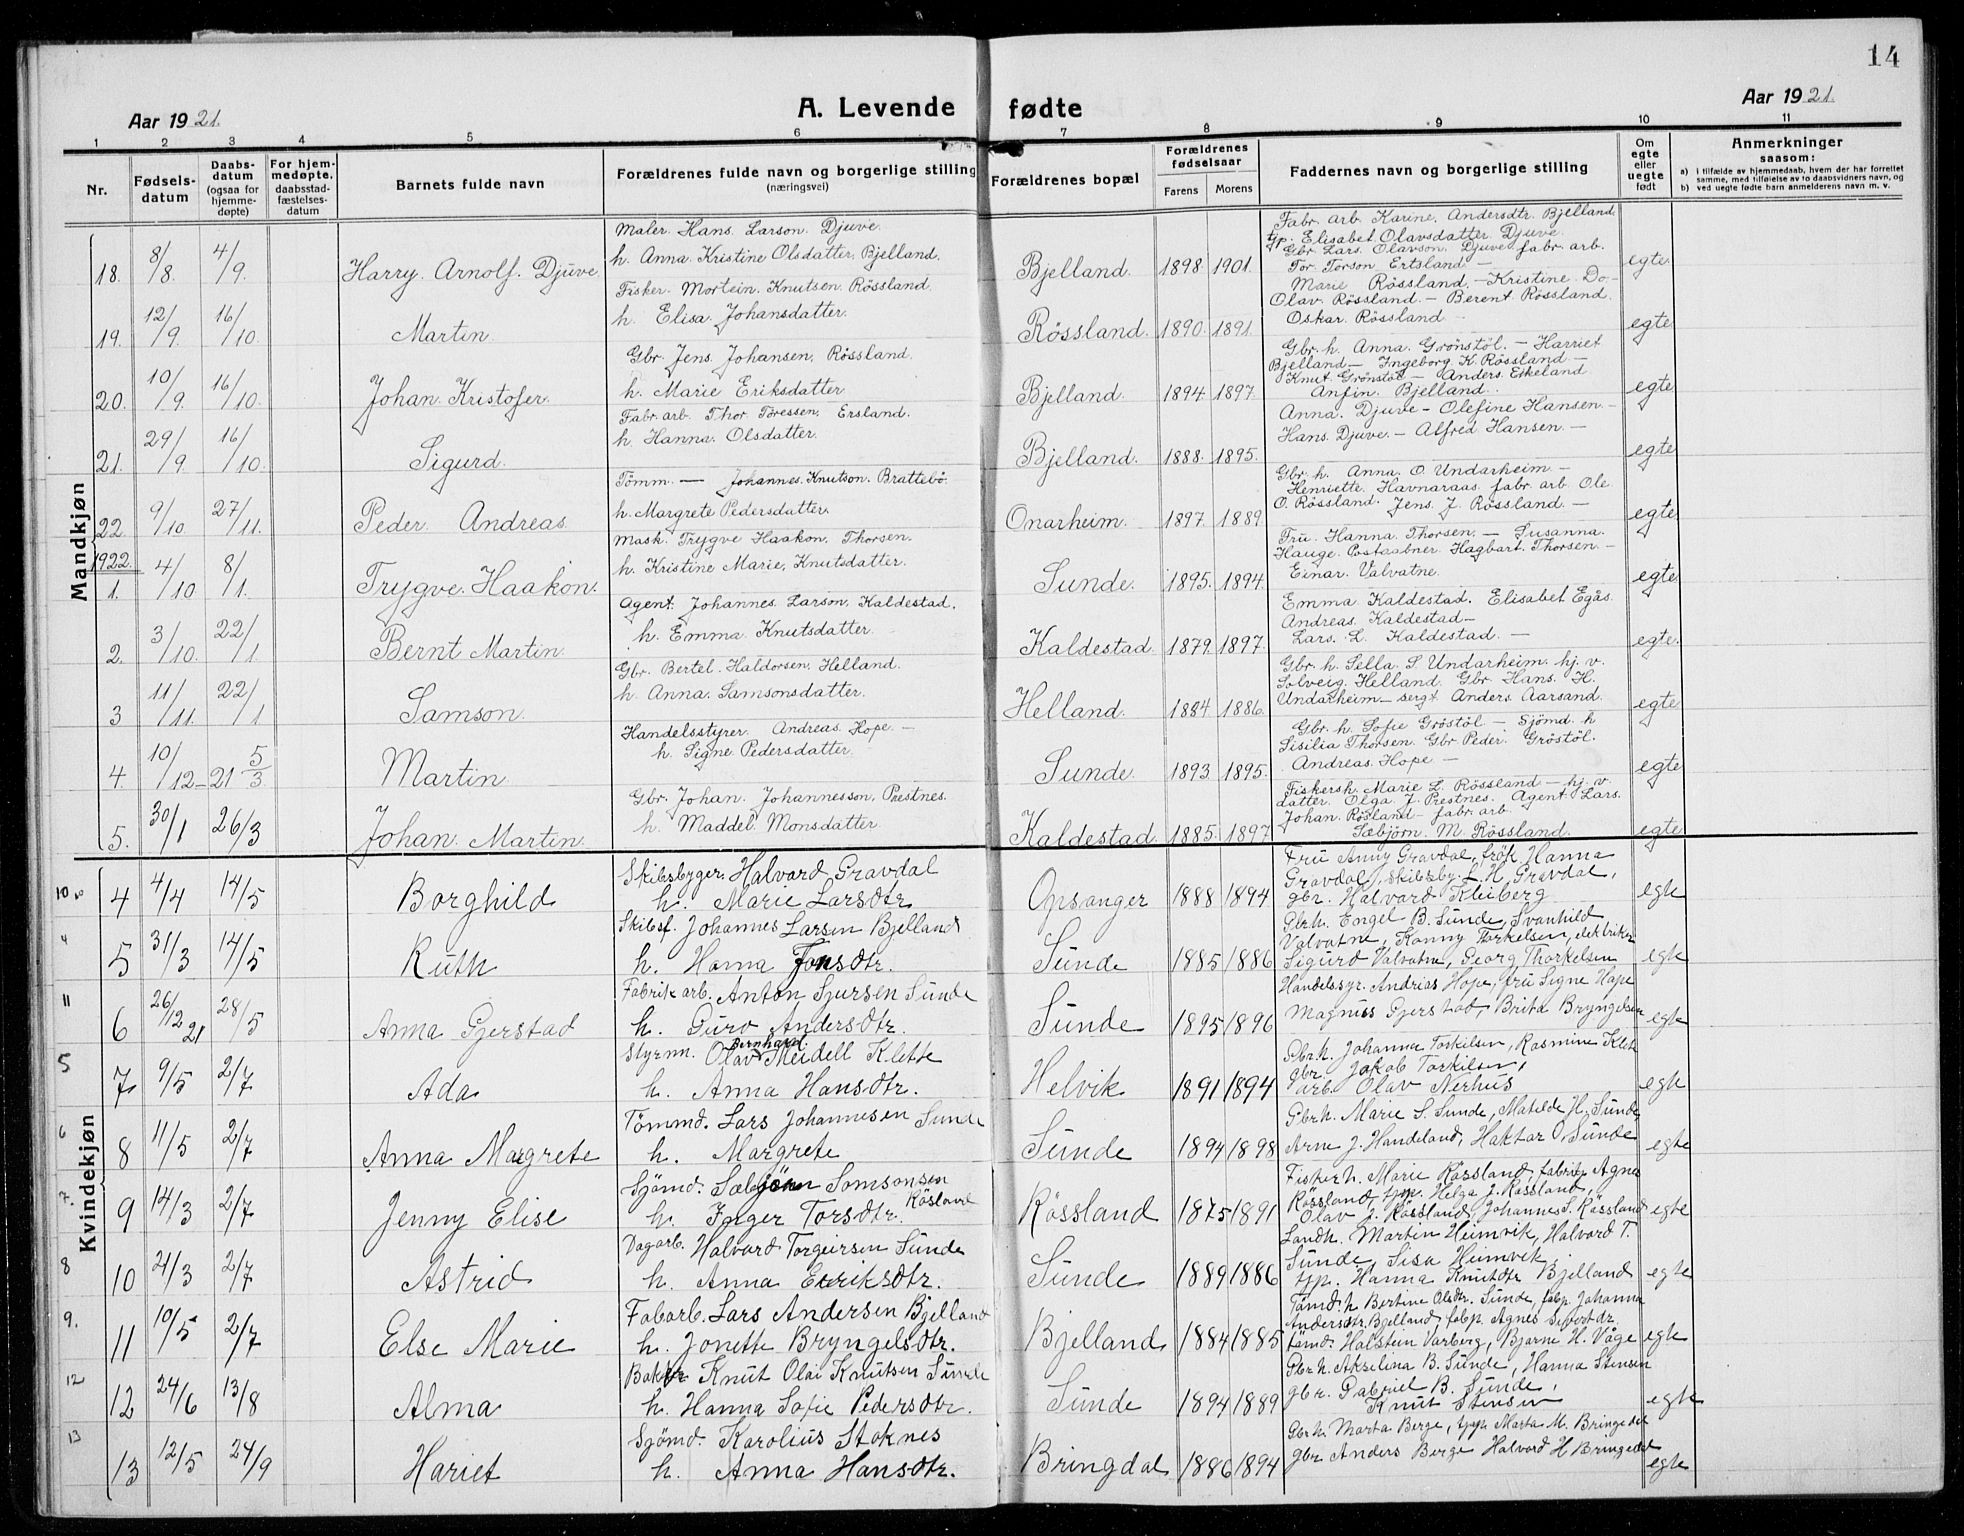 14
Aar 1921.
A. Levende fødte
Aar 1921.
1 2 3 4 5 6 7 8 9 10 11
Nr.
Fødsels-
datum
Daabs-
datum
(ogsaa for
hjemme-
døpte)
For hjem-
medøpte,
daabsstad-
fæstelses-
datum
Barnets fulde navn
Forældrenes fulde navn og borgerlige stilling
(næringsvei)
Forældrenes bopæl
Forældrenes
fødselsaar
Farens Morens
Faddernes navn og borgerlige stilling
Om
egte
eller
uegte
født
Anmerkninger
saasom:
a) i tilfælde av hjemmedaab, hvem der har forrettet
samme, med tilføielse av to daabsvidners navn, og
b) ved uegte fødte barn anmelderens navn m. v.
Mandkjøn
18. 8/8. 4/9. Harry. Arnolf. Djuve.
Maler. Hans. Larson. Djuve.
h. Anna. Kristine Olsdatter, Bjelland.
Bjelland. 1898. 1901.
Fabr. arb. Karine. Andersdtr. Bjelland.
tjp. Elisabet. Olavsdatter. Djuve.
Gbr. Lars. Olavson. Djuve. fabr. arb.
Tor. Torson Ertsland —
egte.
19. 12/9. 16/10. Martin.
Fisker. Mortein. Knutsen. Røssland.
h. Elisa. Johansdatter.
Røssland. 1890. 1891.
Marie Røssland. — Kristine Do —
Olav. Røssland. — Berent. Røssland.
Oskar. Røssland
egte.
20. 10/9. 16/10. Johan. Kristofer.
Gbr. Jens. Johansen. Røssland.
h. Marie Eriksdatter.
Bjelland. 1894. 1897.
Gbr. h. Anna. Grønstøl. — Harriet
Bjelland — Ingeborg K. Røssland —
Knut. Grønstøl — Anders. Eikeland
Anfin. Bjelland.
egte.
21. 29/9. 16/10. Sigurd.
Fabr. arb. Thor. Toressen. Ersland.
h. Hanna. Olsdatter.
Bjelland. 1888. 1895.
Anna. Djuve — Olefine Hansen. —
Hans. Djuve. — Alfred Hansen. —
egte.
22. 9/10. 27/11. Peder. Andreas.
Tömm. — Johannes. Knutson. Brattebö.
h. Margrete Pedersdatter.
Onarheim. 1897. 1889.
Gbr. h. Anna. O. Undarheim. —
Henriette. Havnaraas. fabr. arb. Ole.
O. Røssland. Jens. J. Røssland. —
egte.
1922.
1. 4/10 8/1. Trygve. Haakon.
Mask. Trygve Haakon. Thorsen.
h. Kristine Marie. Knutsdatter.
Sunde. 1895. 1894.
Fru. Hanna. Thorsen. — Susanna.
Hauge. Postaabner. Hagbart. Thorsen. —
Einar. Valvatne.
egte.
2. 3/10. 22/1. Bernt Martin.
Agent. Johannes. Larson. Kaldestad.
h. Emma. Knutsdatter.
Kaldestad. 1879. 1897.
Emma. Kaldestad. Elisabet. Egås.
Andreas. Kaldestad —
Lars. L. Kaldestad. —
egte.
3 11/11. 22/1 Samson.
Gbr. Bertel. Haldorsen. Helland.
h. Anna. Samsonsdatter.
Helland. 1884. 1886.
Gbr. h. Sella. S. Undarheim. hj. v.
Solveig. Helland. Gbr. Hans. H.
Undarheim — sergt. Anders. Aarsand.
egte.
4. 10/12-21 5/3 Martin.
Handelsstyrer. Andreas. Hope. —
h. Signe. Pedersdatter.
Sunde. 1893. 1895.
Gbr. h. Sofie Gröstöl. — Sjömd. h
Sisilia Thorsen. Gbr. Peder. Gröstöl.
Andreas. Hope —
egte.
5. 30/1 26/3 Johan. Martin.
Gbr. Johan. Johannesson. Prestnes.
h. Maddel. Monsdatter.
Kaldestad. 1885. 1897.
Fiskersh. Marie L. Røssland — hj. v.
datter. Olga. J. Prestnes. Agent. Lars.
Johan. Røsland — fabr. arb.
Sæbjörn. M. Røssland.
egte.
Kvindekjøn
10 4 4/4 14/5 Borghild
Skibsbyger. Halvard Gravdal
h. Marie Larsdtr
Opsanger 1888 1894
Fru Anny Gravdal, frøk Hanna
Gravdal, skibsby. L. H. Gravdal,
gbr. Halvard Kleiberg
egte
4 5 31/3 14/5 Ruth
Skibsf. Johannes Larsen Bjelland
h. Hanna Jonsdtr.
Sunde 1885 1886
Gbrh. Engel B. Sunde, Svanhild
Valvatne, Konny Torkelsen,
Sigurd Valvatne, Georg Thorkelsen
egte
11 6 26/12 21 28/5 Anna Gjerstad
Fabrik arb. Anton Sjursen Sunde
h. Guro Andersdtr.
Sunde 1895 1896
Handelssyr. Andrias Hope, fru Signe Hope
Magnus Gjerstad, Brita Bryngelsen
egte
5 7 9/5 2/7 Ada
Styrmn. Olav Bernhard Meidell Klette
h. Anna Hansdtr.
Helvik 1891 1894
Gbrh. Johanna Torkilsen, Rasmine Klet
gbr. Jakob Torkilsen,
arb. Olav Nerhus
egte
6 8 11/5 2/7 Anna Margrete
Tømmd. Lars Johannesen Sunde
h. Margrete
Sunde 1894 1898
Gbrh. Marie S. Sunde, Matilde H. Sunde
Arne J. Handeland, Haktor O. Sunde
egte
7. 9 14/3 2/7 Jenny Elise
Sjømd. Sæbjørn Somsonsen
Røsland
h. Inger Torsdtr.
Røssland 1875 1891
Fiskerh. Marie Røssland, fabrikp. Agna
Røssland, tjp. Helga J. Røssland,
Olav J. Røssland, Johannes S. Røssland
egte
8 10 21/3 2/7 Astrid
Dagarb. Halvard Torgeirsen Sunde
h. Anna Eriksdtr.
Sunde 1889 1886
Landh. Martin Heimvik, Halvard T.
Sunde, Sisa Heimvik,
tjp. Hanna Knutdtr Bjelland
egte
9. 11 10/5 2/7 Else Marie
Fabarb. Lars Andersen Bjelland
h. Jonette Bryngelsdtr.
Bjelland 1884 1885
Tømd. h Bertine Olsdtr. Sunde, fabp. Johanna
Andersdtr. Bjelland, fabp. Agnes Sivertdr,
tømd. Halstein Varberg, Bjarne H. Våge
egte
12 12 24/6 13/8 Alma
Baker Knut Olai Knutsen Sunde
h. Hanna Sofie Pedersdtr.
Sunde 1894 1889
Gbrh. Akselina B. Sunde, Hanna Stensen
gbr. Gabriel B. Sunde,
Knut Stensen
egte
13 13 12/5 24/9 Hariet
Sjømd. Karolius Stoknes
h. Anna Hansdtr.
Bringdal 1886 1894
Gbrh. Marta Berge, tjp. Marta M. Bringedal
gbr Anders Berge Halvard H Bringedal
egte